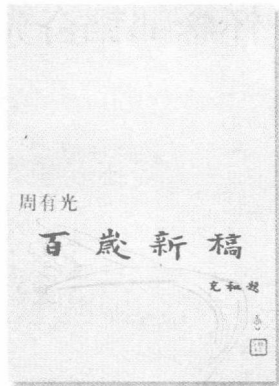 周有光
百岁新稿
充和题